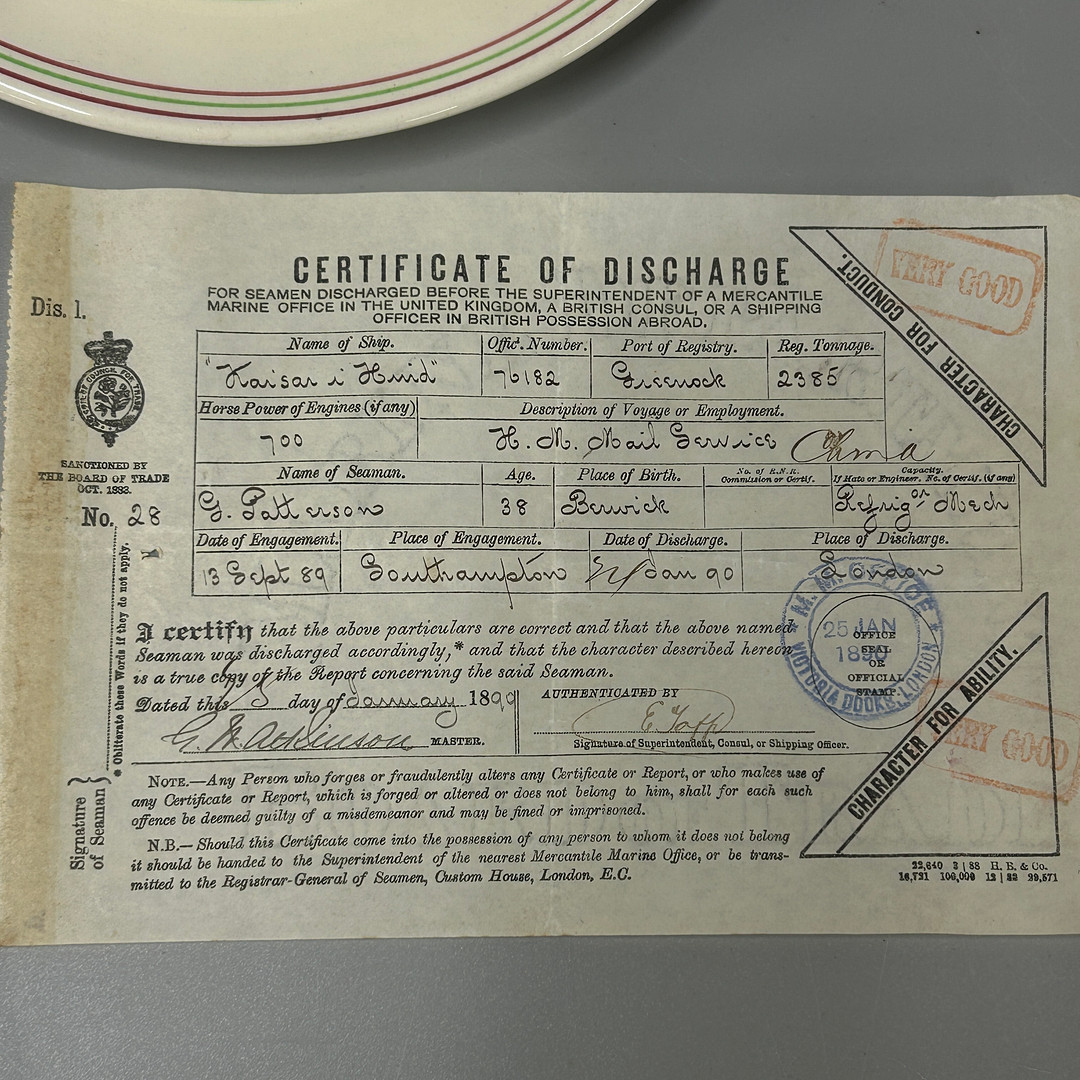 CERTIFICATE OF DISCHARGE
FOR SEAMEN DISCHARGED BEFORE THE SUPERINTENDENT OF A MERCANTILE
MARINE OFFICE IN THE UNITED KINGDOM, A BRITISH CONSUL, OR A SHIPPING
OFFICER IN BRITISH POSSESSION ABROAD.
Dis. 1.
COUNCIL FOR TRADE
SANCTIONED BY
THE BOARD OF TRADE
OCT. 1883.
No. 28
Name of Ship. Offic. Number. Port of Registry. Reg. Tonnage.
"Kaisar i Hind" 76182 Greenock 2385
Horse Power of Engines (if any) Description of Voyage or Employment.
700 H. M. Mail Service China
Name of Seaman. Age. Place of Birth. No. of R.N.R. Commission or Certif. Capacity. If Mate or Engineer, No. of Certif. (if any)
G. Patterson 38 Berwick Refrigor Mech
Date of Engagement. Place of Engagement. Date of Discharge. Place of Discharge.
13 Sept 89 Southampton Jan 90 London
I certify that the above particulars are correct and that the above named
Seaman was discharged accordingly,* and that the character described hereon
is a true copy of the Report concerning the said Seaman.
Dated this day of January 18
MASTER.
AUTHENTICATED BY
Signature of Superintendent, Consul, or Shipping Officer.
M.M. OFFICE
25 JAN
1890
VICTORIA DOCKS, LONDON
OFFICE
SEAL
OR
OFFICIAL
STAMP.
CHARACTER FOR CONDUCT.
VERY GOOD
CHARACTER FOR ABILITY.
VERY GOOD
* Obliterate these Words if they do not apply.
Signature
of Seaman
NOTE.—Any Person who forges or fraudulently alters any Certificate or Report, or who makes use of
any Certificate or Report, which is forged or altered or does not belong to him, shall for each such
offence be deemed guilty of a misdemeanor and may be fined or imprisoned.
N.B.—Should this Certificate come into the possession of any person to whom it does not belong
it should be handed to the Superintendent of the nearest Mercantile Marine Office, or be trans-
mitted to the Registrar-General of Seamen, Custom House, London, E.C.
22,640 3|88 H. B. & Co.
16,721 100,000 12|88 29,571